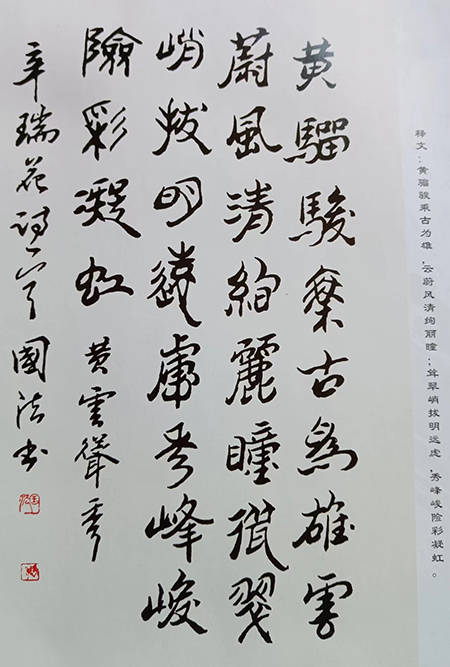 释文：黄骝骏乘古为雄，云蔚风清绚丽瞳；耸翠峭拔明远虚，秀峰峻险彩凝虹。
黄騮駿乘古為雄雲
蔚風清絢麗瞳聳翠
峭拔明遠虚秀峰峻
險彩凝虹 黄雲聳秀
辛瑞花詩一首 國法書